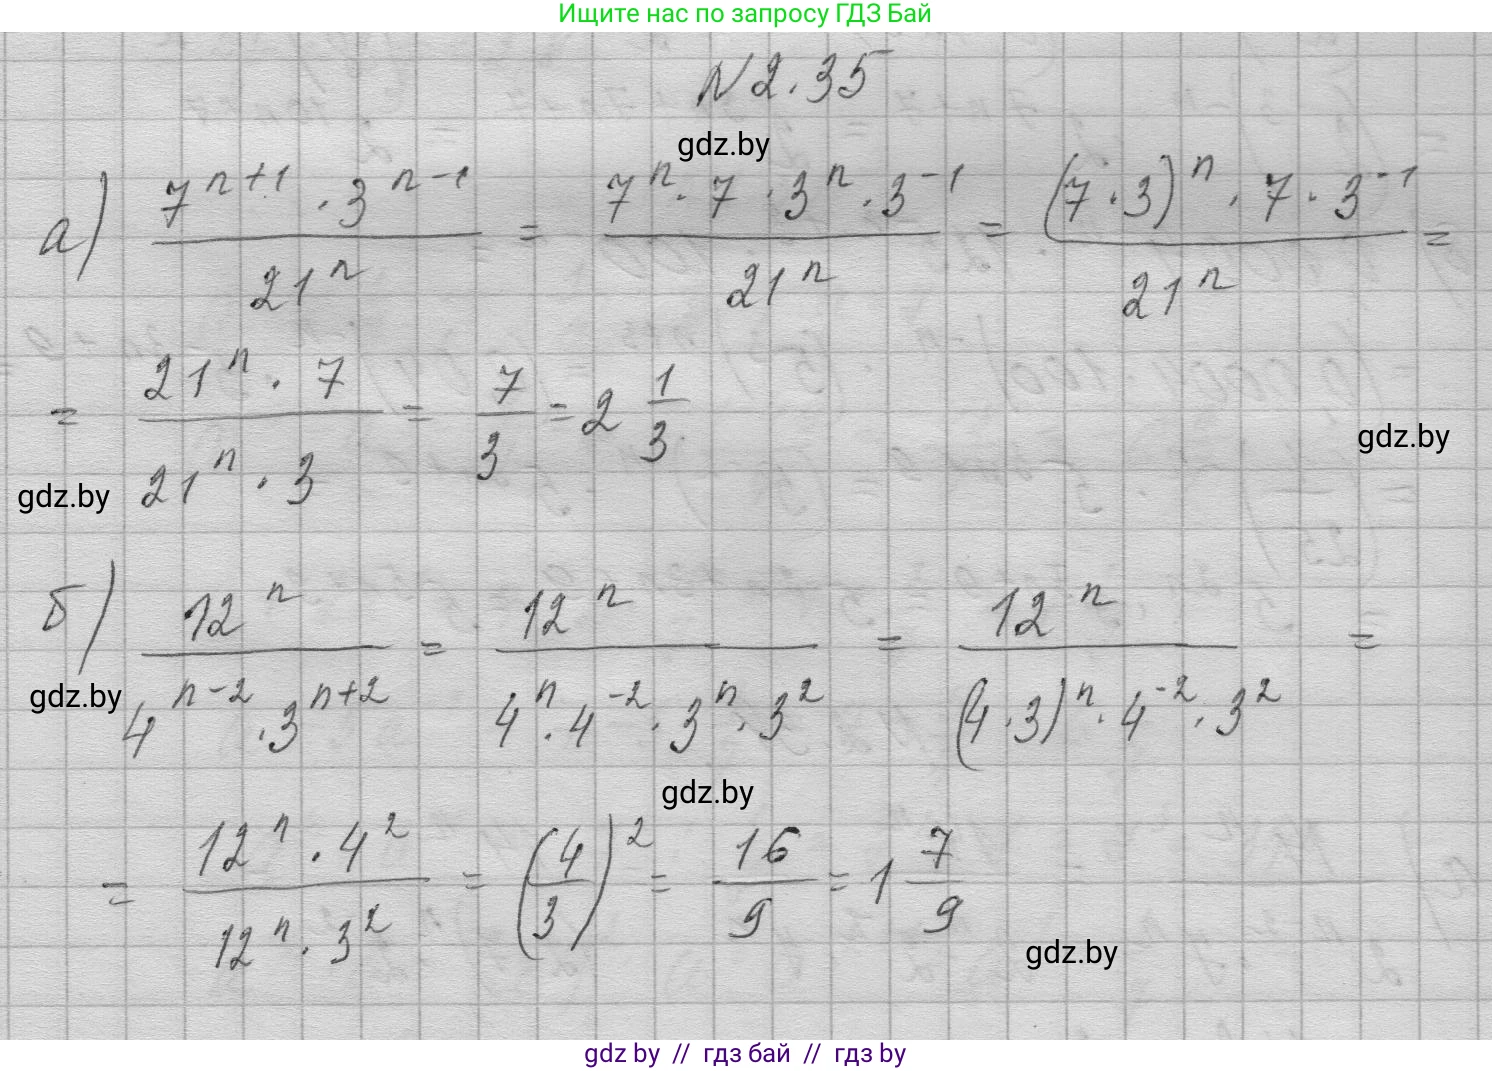 Ищите нас по запросу ГДЗ Бай
N 2.35
gdz.by
а) \frac{7^{n+1} · 3^{n-1}}{21^n} = \frac{7^n · 7 · 3^n · 3^{-1}}{21^n} = \frac{(7 · 3)^n · 7 · 3^{-1}}{21^n} =
= \frac{21^n · 7}{21^n · 3} = \frac{7}{3} = 2 \frac{1}{3}
gdz.by
gdz.by
б) \frac{12^n}{4^{n-2} · 3^{n+2}} = \frac{12^n}{4^n · 4^{-2} · 3^n · 3^2} = \frac{12^n}{(4 · 3)^n · 4^{-2} · 3^2} =
gdz.by
gdz.by
= \frac{12^n · 4^2}{12^n · 3^2} = (\frac{4}{3})^2 = \frac{16}{9} = 1 \frac{7}{9}
gdz.by
gdz by // гдз бай // гдз by